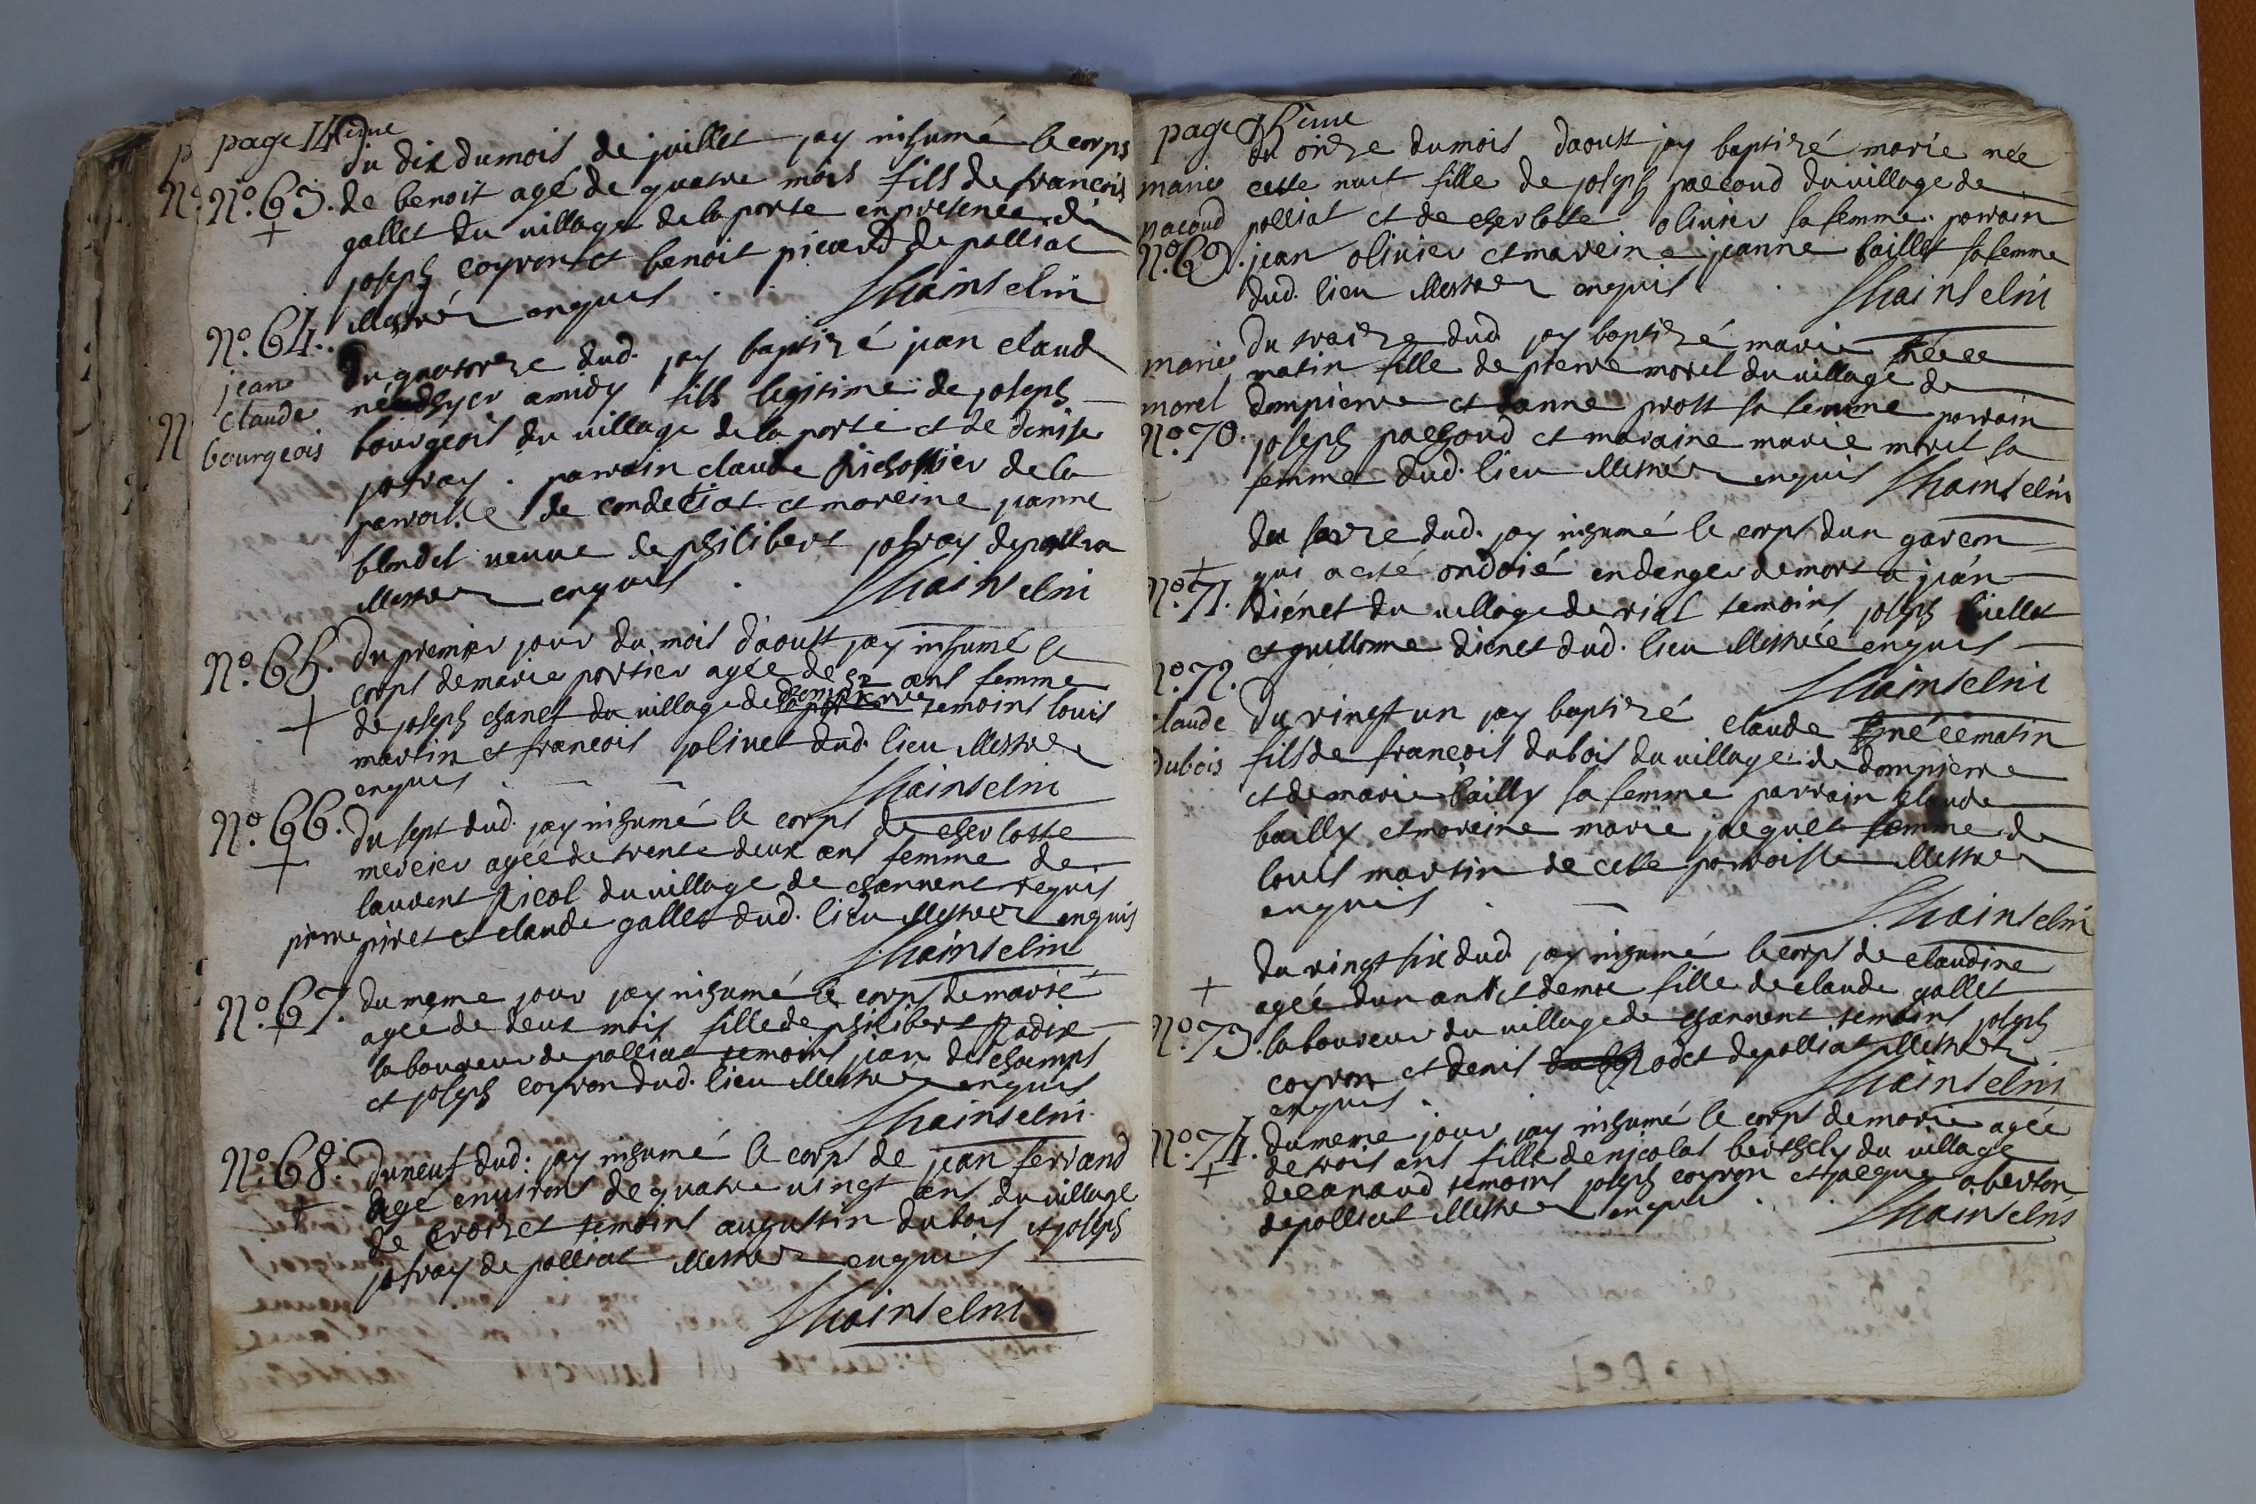 page 14eme
du dix du mois de juillet jay inhumé le corps
N°.63. de benoit agé de quatre mois fills de francois
gallet du village de la porte en presence de
joseph coyron et benoit picard de polliat
illestrés enquis . . Thainselin
N°.64. du quatorze dud. jay baptizé jean claude
jean né dhyer a midy fills legitime de joseph
claude bourgeois du village de la porte et de denise
bourgeois jofray . parrain claude pichollier de la
parroisse de condeciat et moreine jeanne
blondel veuve de philibert jofray de pollia
illestrez enquis . Thainselin
N°.65. Du premier jour du mois d'aoust jay inhumé le
corps de marie portier agée de 52 ans femme
de joseph chanel du village de dompierre temoins louis
martin et francois jolivet dud. lieu illestrez
enquis . Thainselin
N°.66. du sept dud. jay inhumé le corps de cherlotte
mercier agée de trente deux ans femme de
laurent picol du village de channent requis
pierre pivet et claude gallet dud. lieu illestrez enquis
Thainselin
N°.67. du meme jour jay inhumé le corps de marie
agée de deux mois fille de philibert Radix
laboureur de polliat temoins jean deschamps
et joseph coyron dud. lieu illestrés enquis
Thainselin
N°.68. du neuf dud: jay inhumé le corps de jean ferrand
agé environs de quatre vingt ans du village
de croizet temoins augustin dubois et joseph
jofray de polliat illestrez enquis
Thainselin
page 15eme
du onze du mois daoust jay baptizé marie née
marie cette nuit fille de joseph paccoud du village de
pacoud polliat et de cherlotte olivier sa femme . parrain
N°.69. jean olivier et mareine jeanne baillet sa femme
dud. lieu illestrez enquis . Thainselin
du traize dud jay baptizé marie née ce
marie matin fille de pierre morel du village de
morel dompierre et danne prost sa femme parrain
N°.70. joseph pacgoud et maraine marie morel sa
femme dud. lieu illestrés enquis Thainselin
du saize dud. jay inhumé le corps dun garcon
qui a esté ondoié en danger de mort a jean
N°.71. diénet du village de temoins joseph
et guillonne dienet dud. lieu illestrée enquis
N°.72. Thainselin
claude du vingt un jay baptizé claude né ce matin
dubois fils de francois dubois du village de dompierre
et de marie bailly sa femme parrain claude
bailly et moreine marie jacquet femme de
louis martin de cette parroisse illestrez
enquis . Thainselin
du vingt six dud. jay inhumé le corps de claudine
agée dun ans et demie fille de claude gallet
N°.73. laboureur du village de channent temoins joseph
coyron et denis odet de polliat illestrez
enquis . Thainselin
N°.74. du meme jour jay inhumé le corps de marie agée
de trois ans fille de nicolas berthely du village
de canaud temoins joseph coyron et jacque oberton
de polliat illestrez enquis . Thainselin